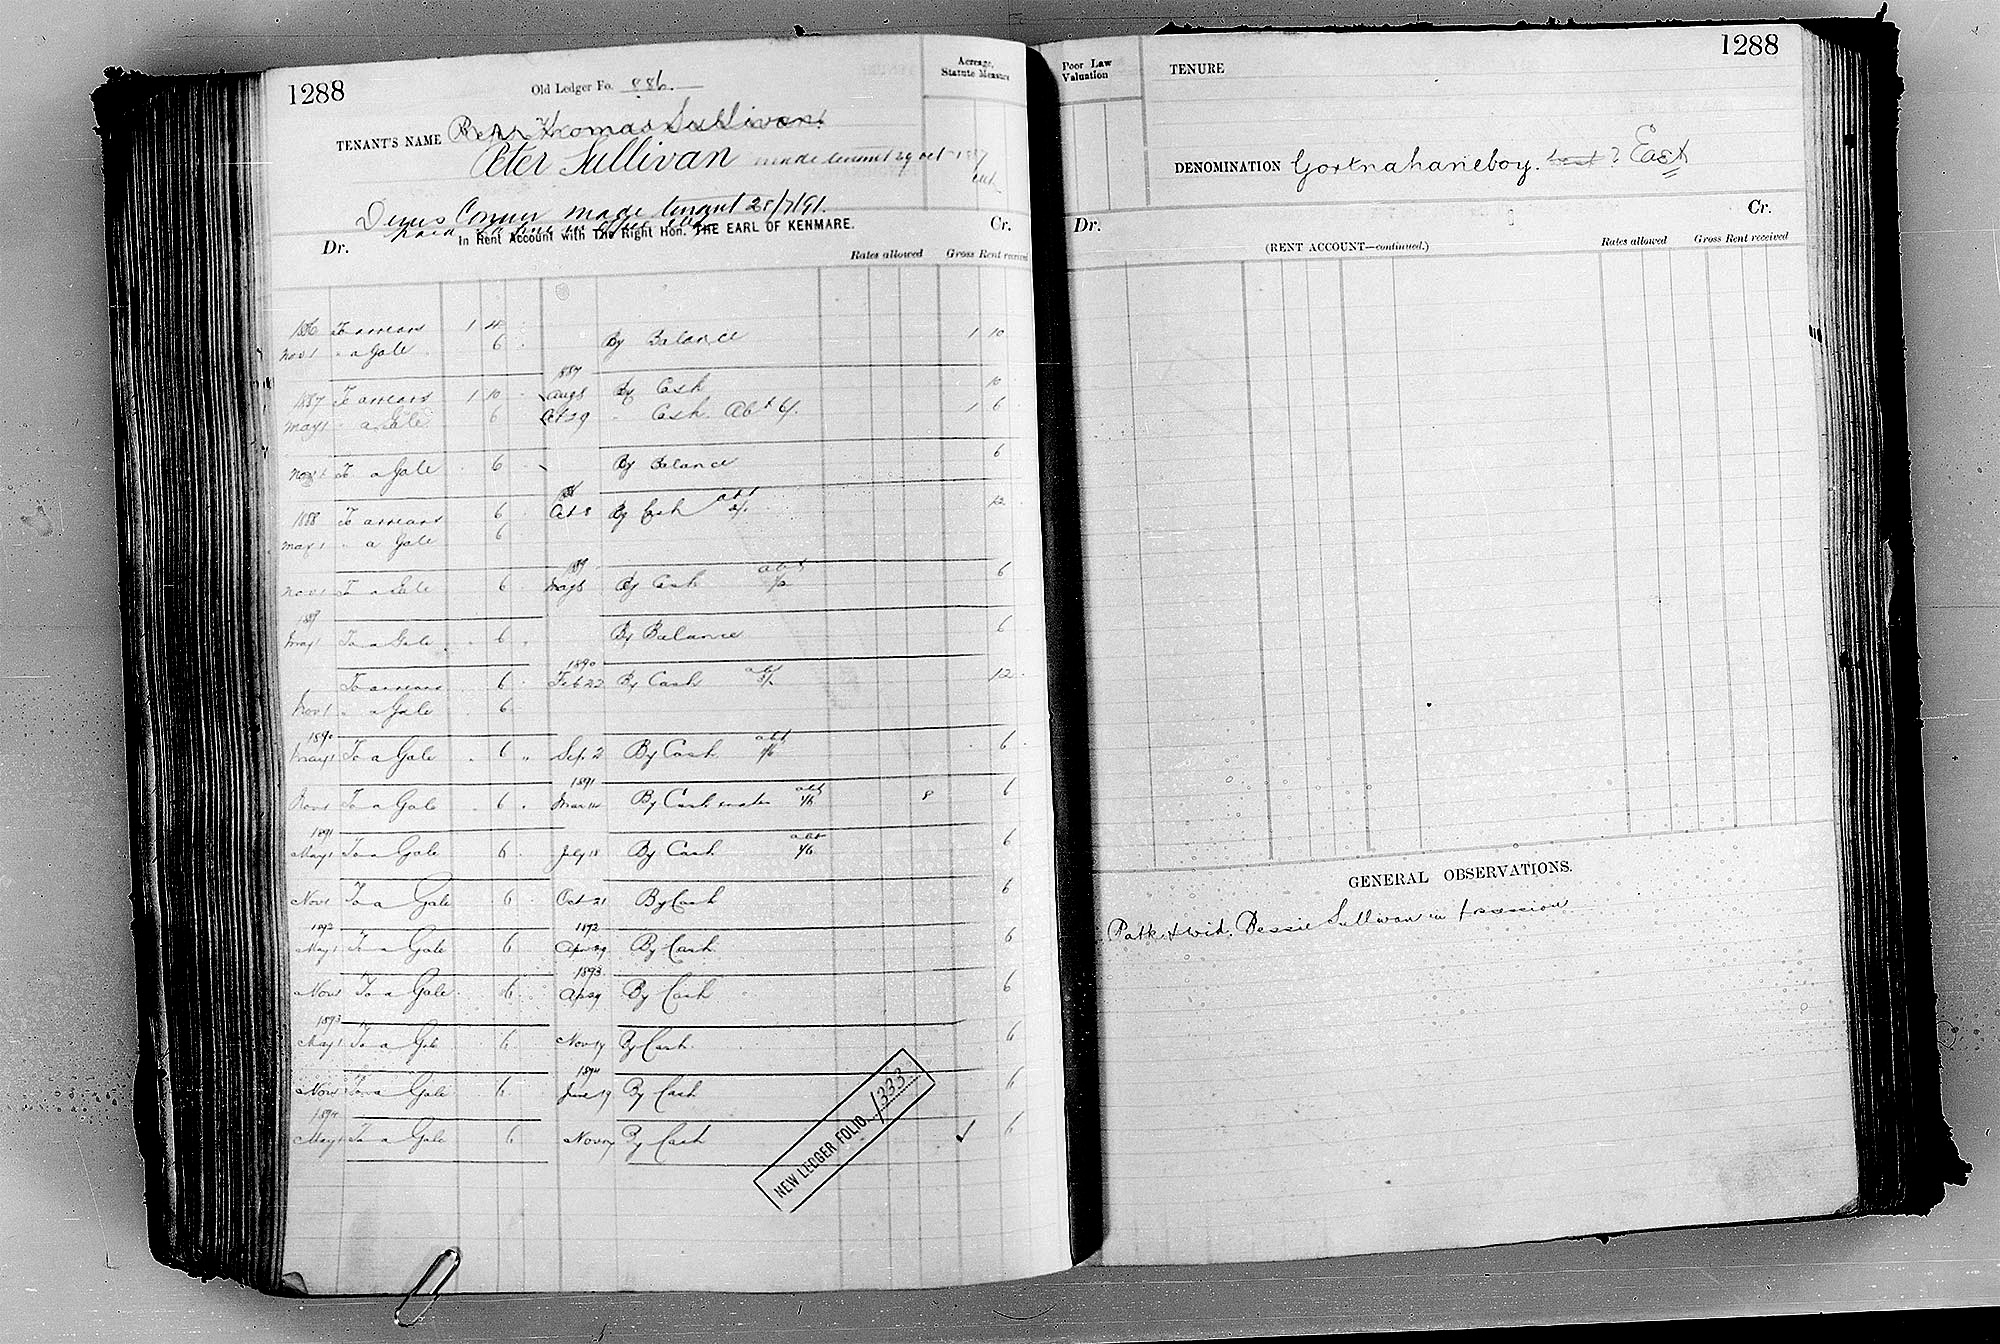 1288
Old Ledger Fo. 886.
Acreage,
Statute Measure
TENANT'S NAME Reps Thomas Sullivan
Peter Sullivan made tenant 29 Oct 1887
Denis Connor made tenant 28/7/91.
In Rent Account with The Right Hon. THE EARL OF KENMARE.
Dr. Cr.
Rates allowed Gross Rent received
1886 To arrears 1 4
Nov 1 " a Gale 6 By Balance 1 10
1887
1887 To arrears 1 10 Aug 8 By Cash 10
May 1 " a Gale 6 Oct 29 " Cash Abt 6/. 1 6
Nov 1 To a Gale 6 By Balance 6
1888 To arrears 6 Oct 8 By Cash abt 12
May 1 " a Gale 6
1889
Nov 1 To a Gale 6 May 8 By Cash abt 6
1889
May 1 To a Gale 6 By Balance 6
1890
To arrears 6 Feb 22 By Cash abt 12
Nov 1 " a Gale 6
1890
May 1 To a Gale 6 Sep. 2 By Cash abt 1/6 6
1891
Nov 1 To a Gale 6 Mar 14 By Cash & rates abt 1/6 8 6
1891
May 1 To a Gale 6 July 18 By Cash abt 1/6 6
Nov 1 To a Gale 6 Oct 21 By Cash 6
1892 1892
May 1 To a Gale 6 Apr 29 By Cash 6
1893
Nov 1 To a Gale 6 Ap 29 By Cash 6
1893
May 1 To a Gale 6 Nov 17 By Cash 6
1894
Nov 1 To a Gale 6 June 19 By Cash 6
1894
May 1 To a Gale 6 Nov 17 By Cash 6
NEW LEDGER FOLIO 1333
1288
Poor Law
Valuation
TENURE
DENOMINATION Gortnahaneboy. West ? East
Dr. Cr.
(RENT ACCOUNT—continued.)
Rates allowed Gross Rent received
GENERAL OBSERVATIONS.
Patk & wid. Bessie Sullivan in possession